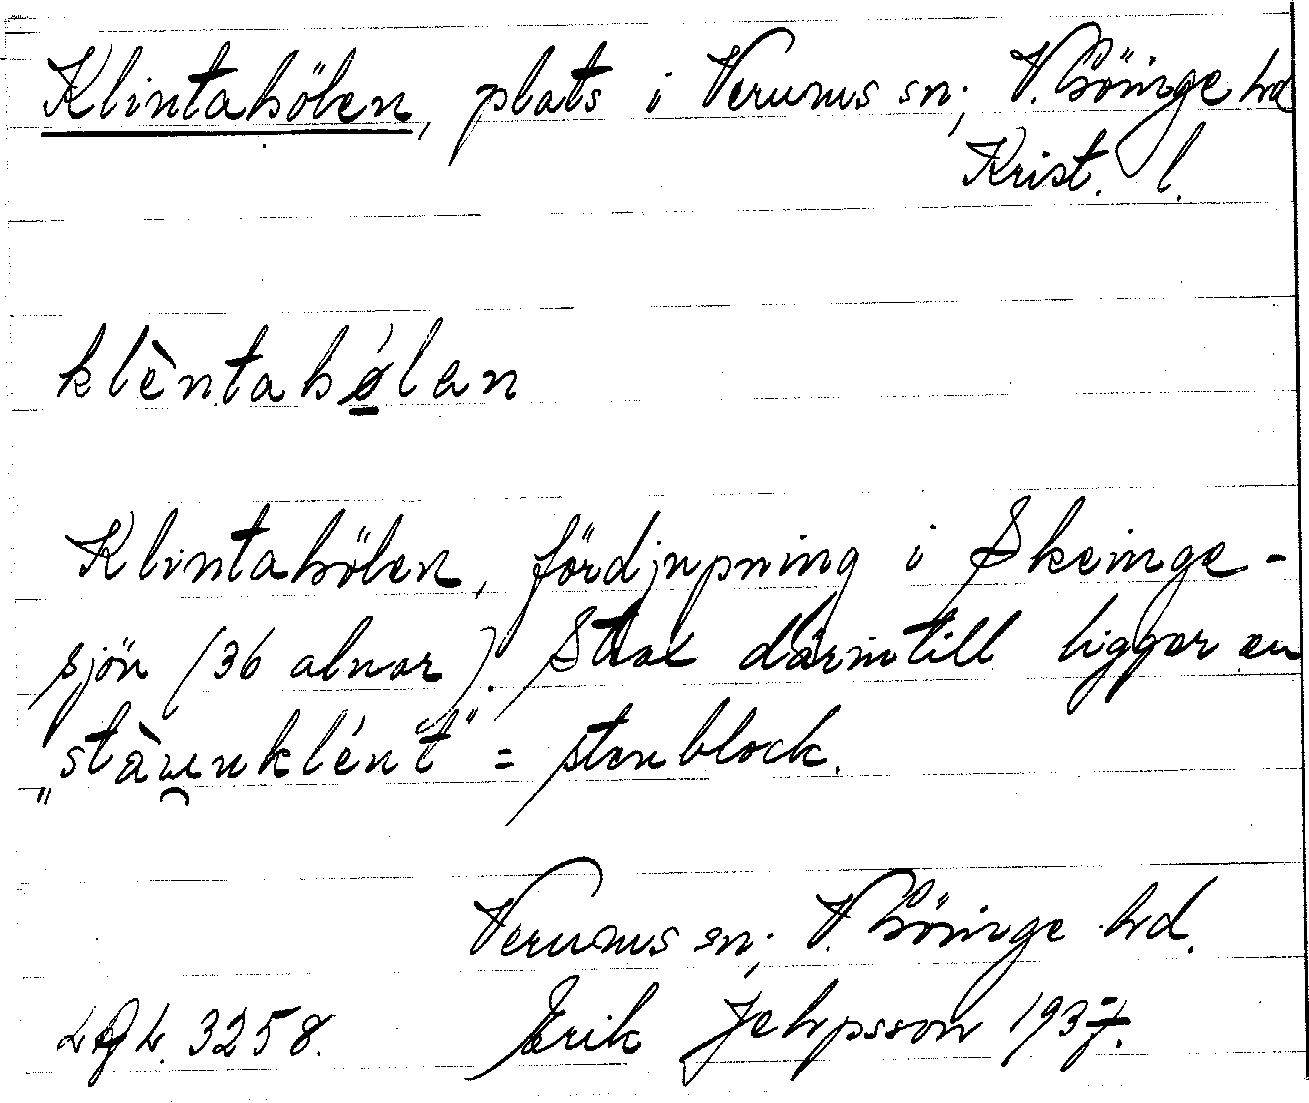 Klintahölen, plats i Verums sn; V. Göinge hd
Krist. l.
klèntahǿ̱lan
Klintahölen, fördjupning i Skeinge-
sjön (36 alnar). Strax därintill ligger en
"stàu̯nklént" = stenblock.
Verums sn; V. Göinge hd.
3258. Erik Jehpsson 1937.